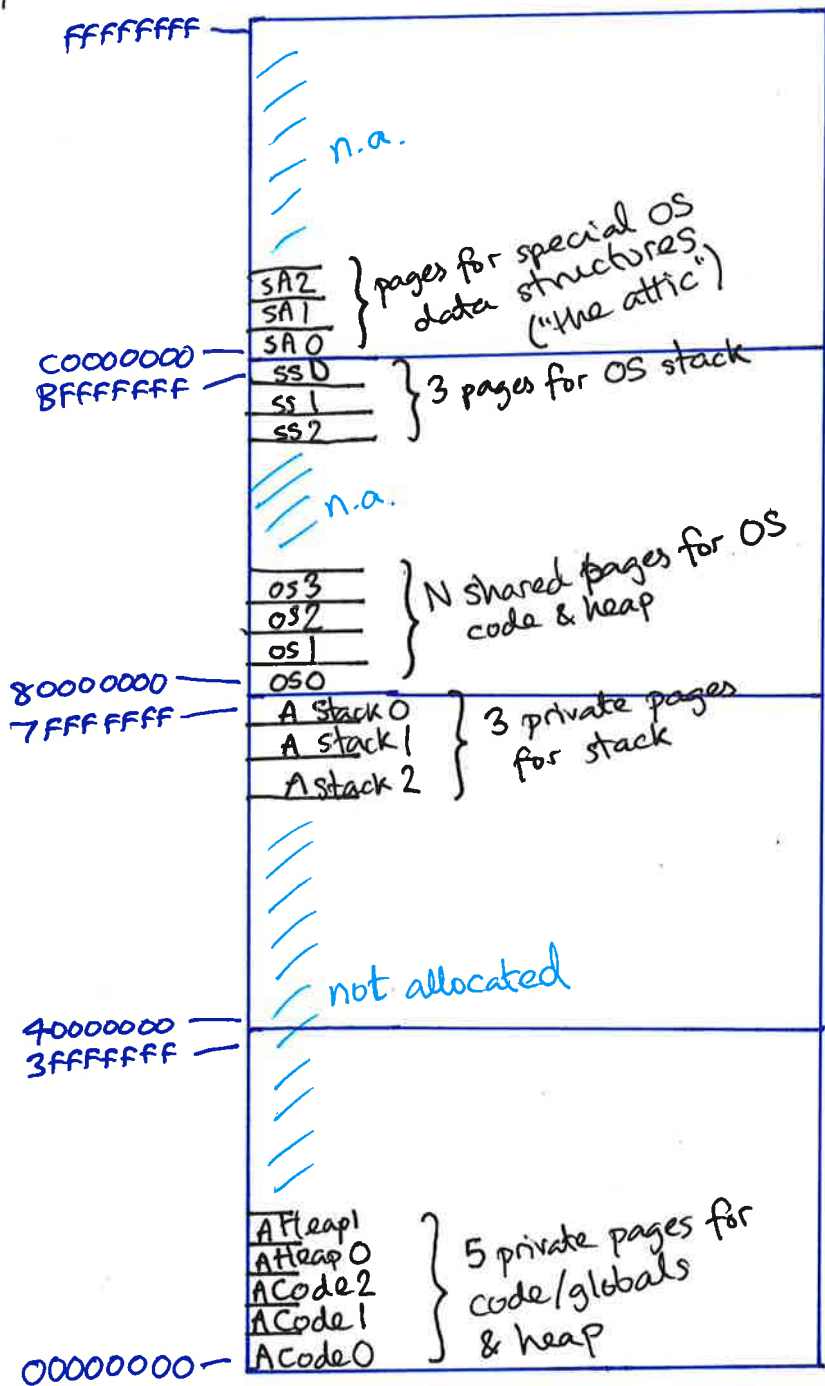 FFFFFFFF
n.a.
SA2
SA1
SA0
pages for special OS
data structures
("the attic")
C0000000
BFFFFFFF
SS0
SS1
SS2
3 pages for OS stack
n.a.
OS3
OS2
OS1
OS0
N shared pages for OS
code & heap
80000000
7FFFFFFF
A Stack0
A Stack1
A Stack2
3 private pages
for stack
not allocated
40000000
3FFFFFFF
AHeap1
AHeap0
ACode2
ACode1
ACode0
5 private pages for
code/globals
& heap
00000000